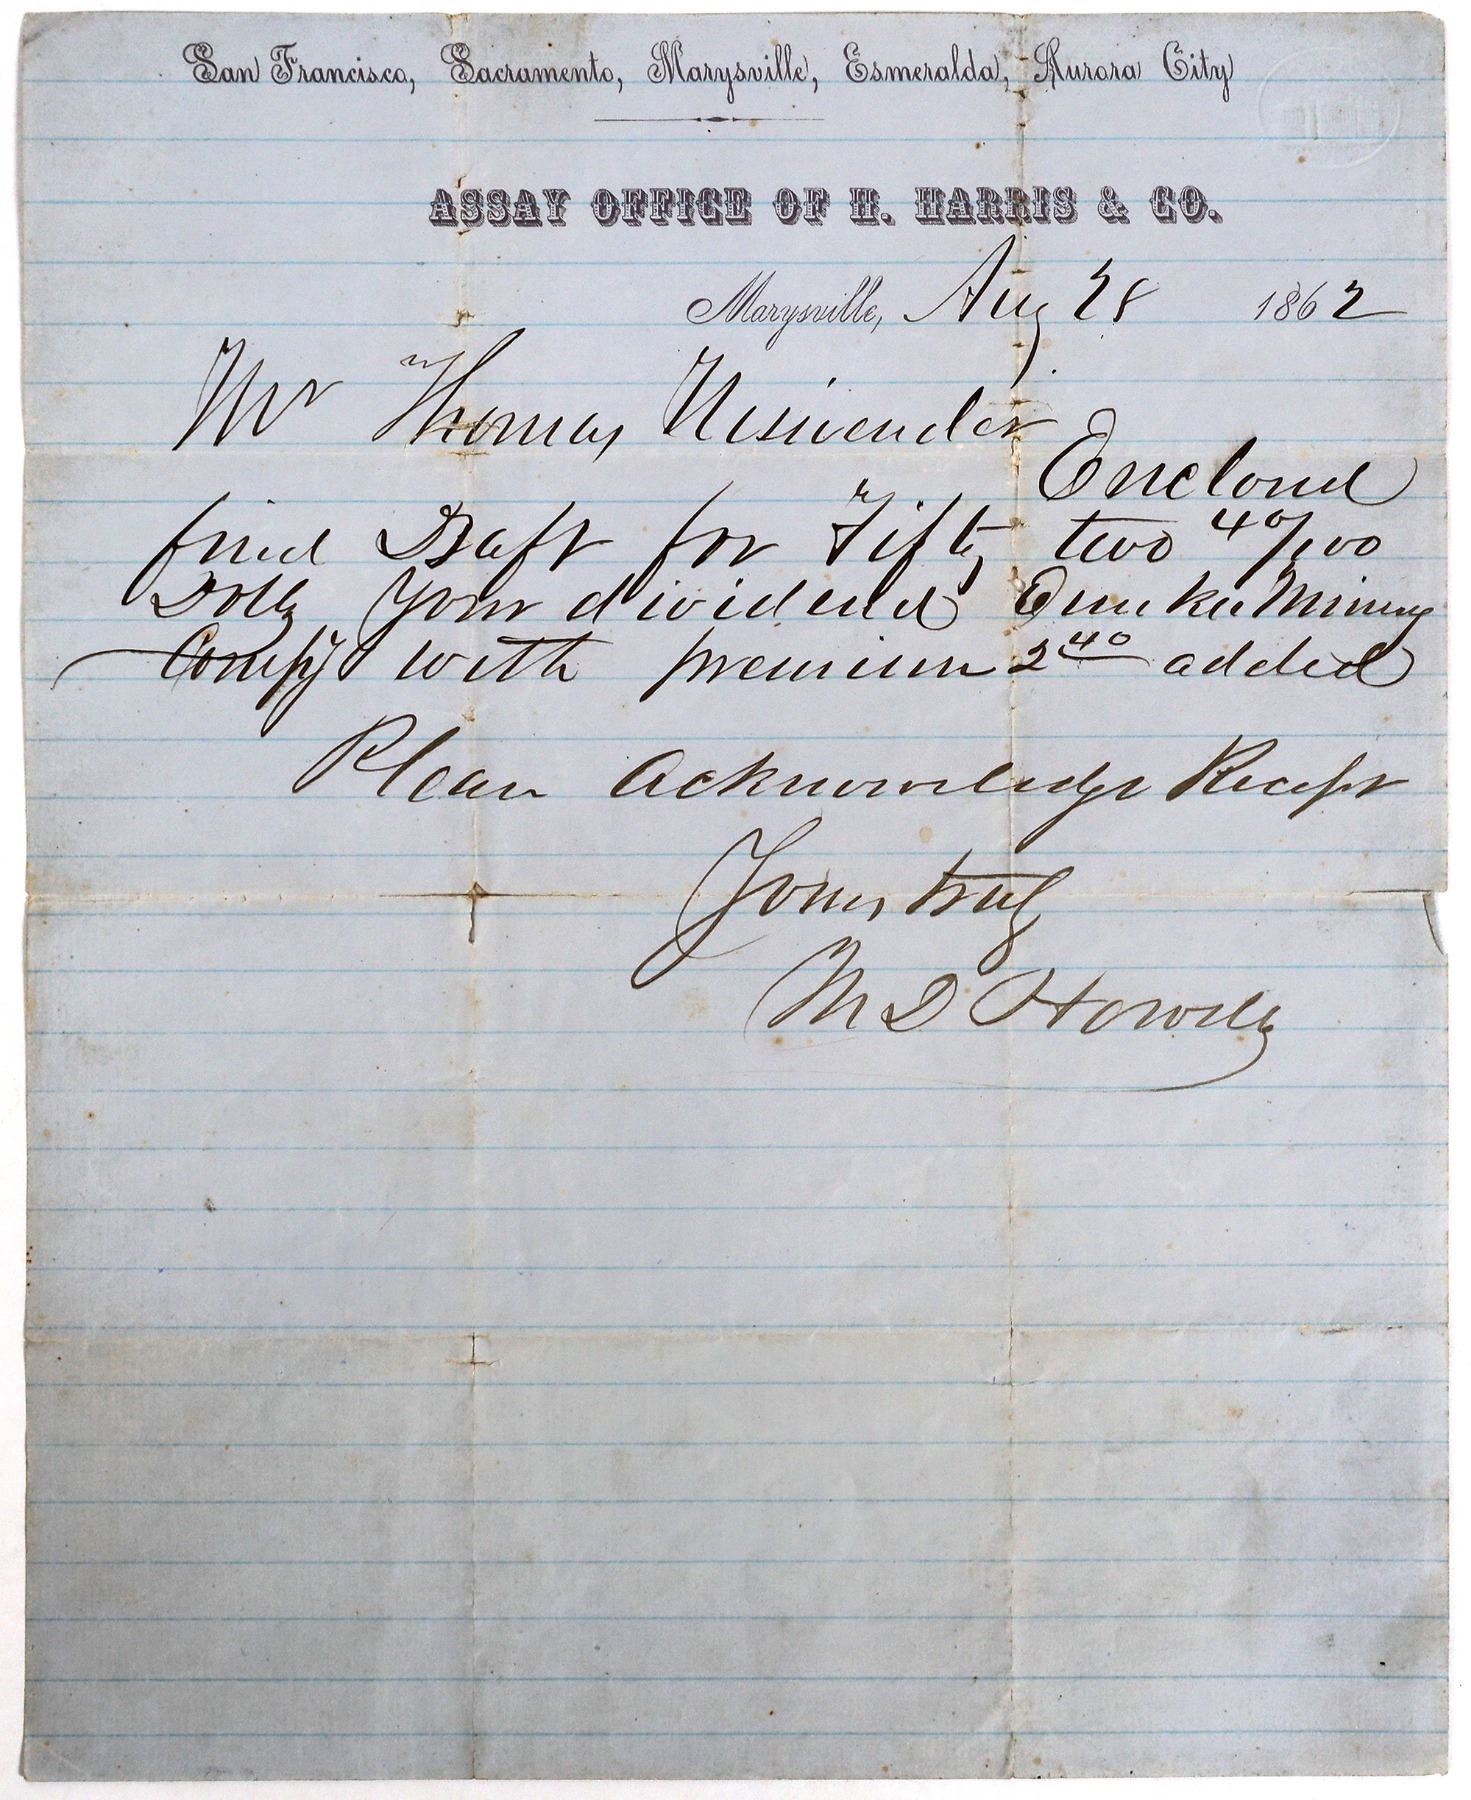 San Francisco, Sacramento, Marysville, Esmeralda, Aurora City
ASSAY OFFICE OF H. HARRIS & CO.
Marysville, Aug 28 1862
Mr Thomas
Enclosed
find Draft for Fifty two 40/100
Dolls Your dividend Eureka Mining
Compy with premium 2 40 added
Please Acknowledge Receipt
Yours truly
M D